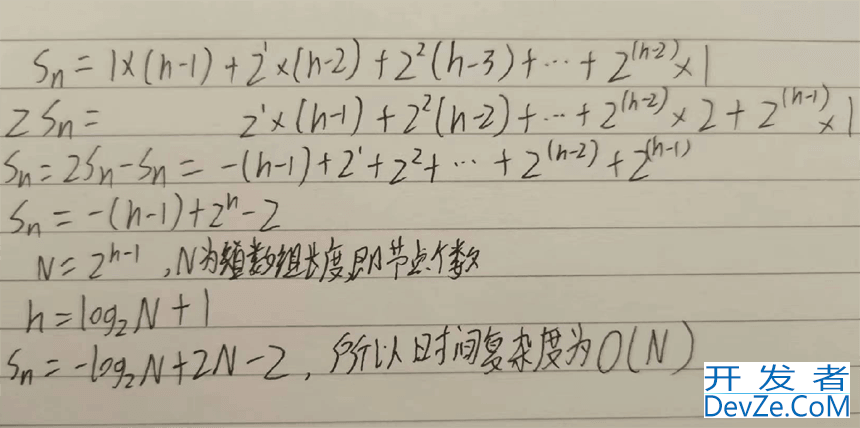 Sn = 1×(h-1) + 2¹×(h-2) + 2²(h-3) + ⋯ + 2^(h-2)×1
2Sn = 2¹×(h-1) + 2²(h-2) + ⋯ + 2^(h-2)×2 + 2^(h-1)×1
Sn = 2Sn - Sn = -(h-1) + 2¹ + 2² + ⋯ + 2^(h-2) + 2^(h-1)
Sn = -(h-1) + 2^h - 2
N = 2^h-1 , N为数组长度,即节点个数
h = log₂N + 1
Sn = -log₂N + 2N - 2 , 所以时间复杂度为O(N)
开发者
DevZe.CoM